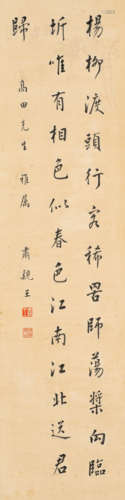 楊柳渡頭行客稀罟師蕩槳向臨
圻唯有相思似春色江南江北送君
歸
高田先生 雅属
肅親王